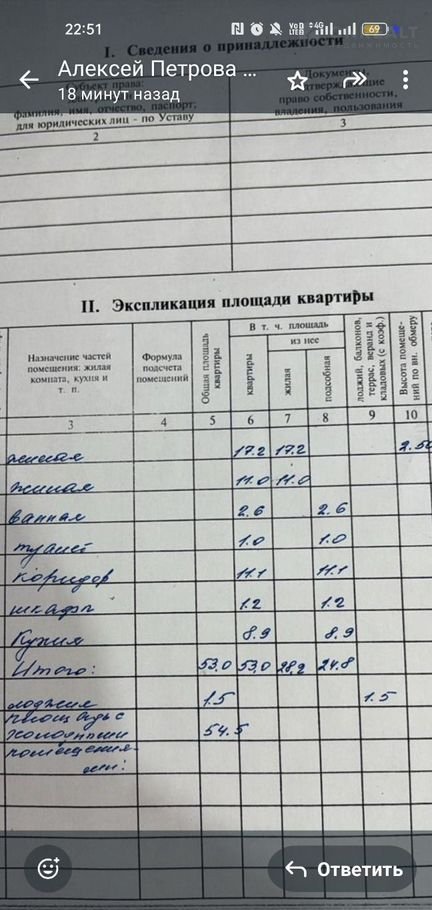 22:51
VoD LTE0
4G
69
I. Сведения о принадлежности
Алексей Петрова ...
18 минут назад
Субъект права:
фамилия, имя, отчество, паспорт;
для юридических лиц - по Уставу
право собственности,
владения, пользования
2 3
II. Экспликация площади квартиры
Назначение частей помещения: жилая комната, кухня и т. п.
Формула подсчета помещений
Общая площадь квартиры
В т. ч. площадь
из нее
квартиры
жилая
подсобная
лоджий, балконов, террас, веранд и кладовых (с коэф.)
Высота помещений по вн. обмеру
3 4 5 6 7 8 9 10
жилая 17.2 17.2
жилая 11.0 11.0
ванная 2.6 2.6
туалет 1.0 1.0
коридор 11.1 11.1
шкафы 1.2 1.2
Кухня 8.9 8.9
Итого: 53.0 53.0 28.2 24.8
лоджия 1.5 1.5
площадь с
холодными 54.5
помещения-
ми:
Ответить